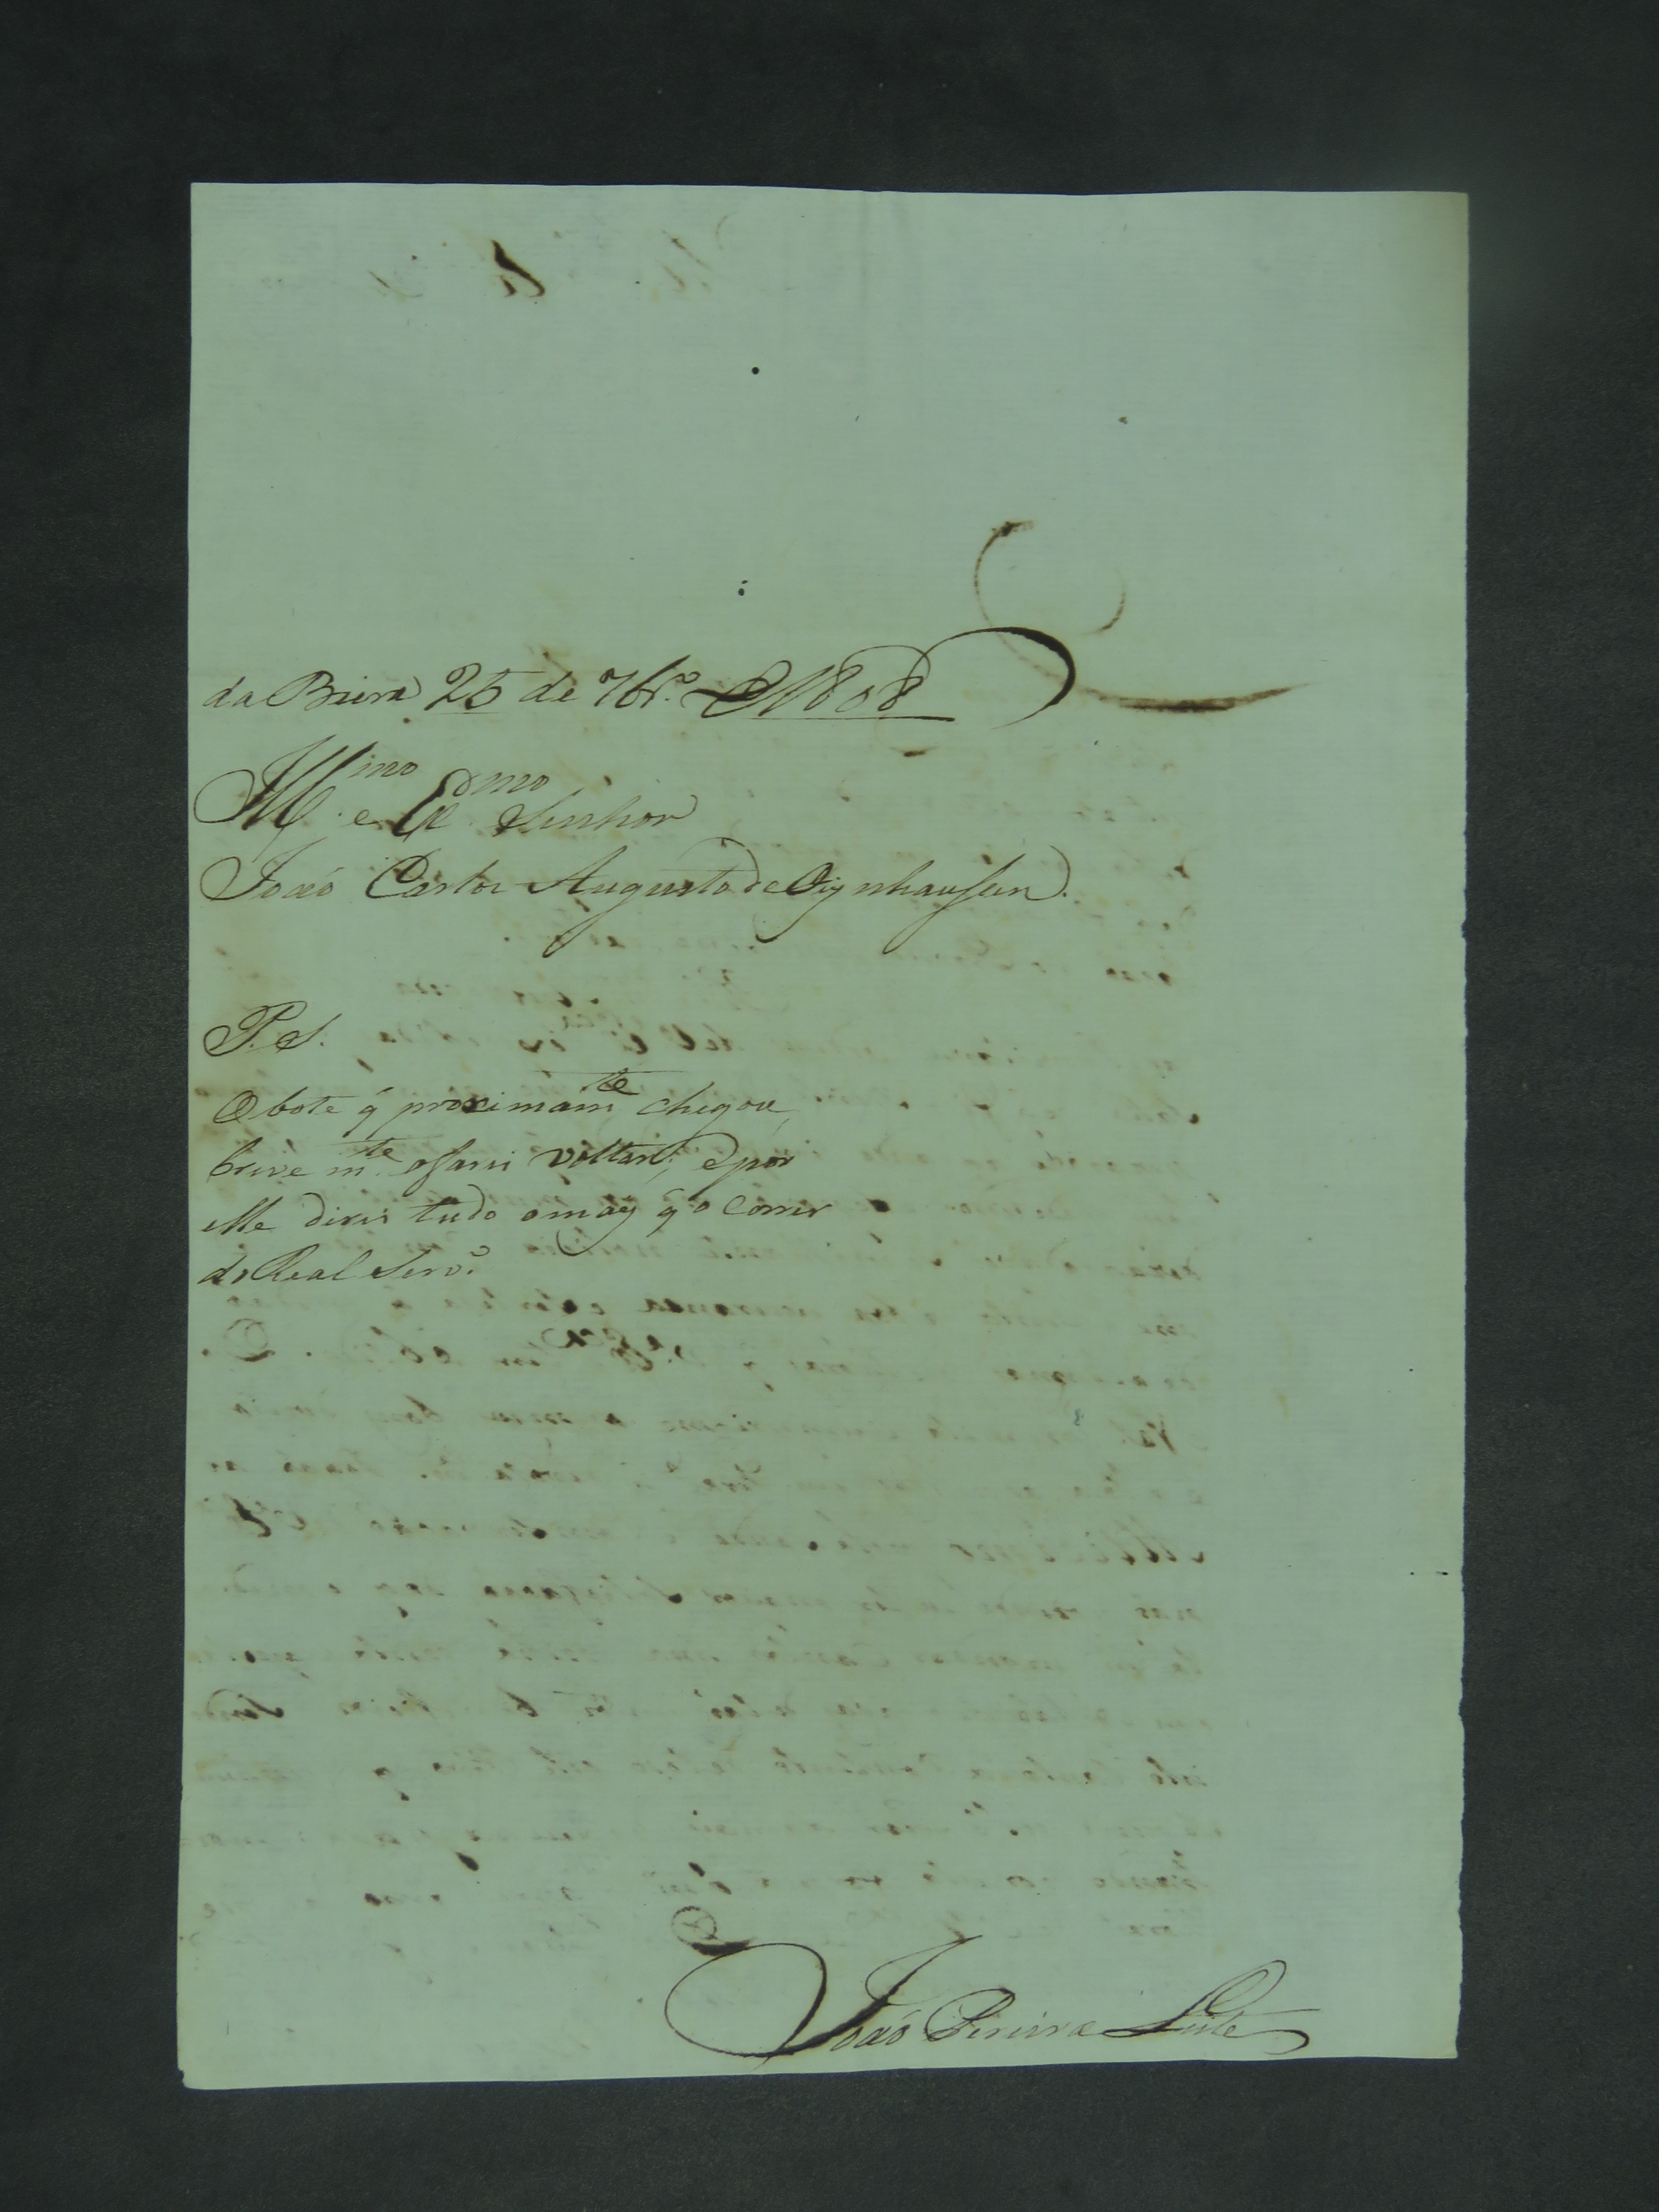 da Beira 25 de 7br.º de 1808
Ill.mo e Ex.mo Senhor
João Carlos Augusto de Oÿnhaussen.
P. S.
O bote q̃ proximam.te chegou,
breve m.te o farei voltar; e por
elle direi tudo o mais q̃ o correr
do Real Serv.º
João Pereira Leite